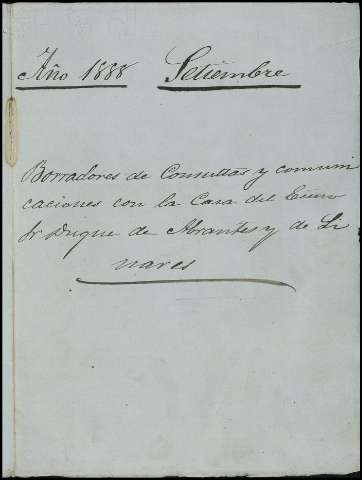 Año 1888 Setiembre
Borradores de Consultas y comuni
caciones con la Casa del Excmo
Sr Duque de Abrantes y de Li
nares